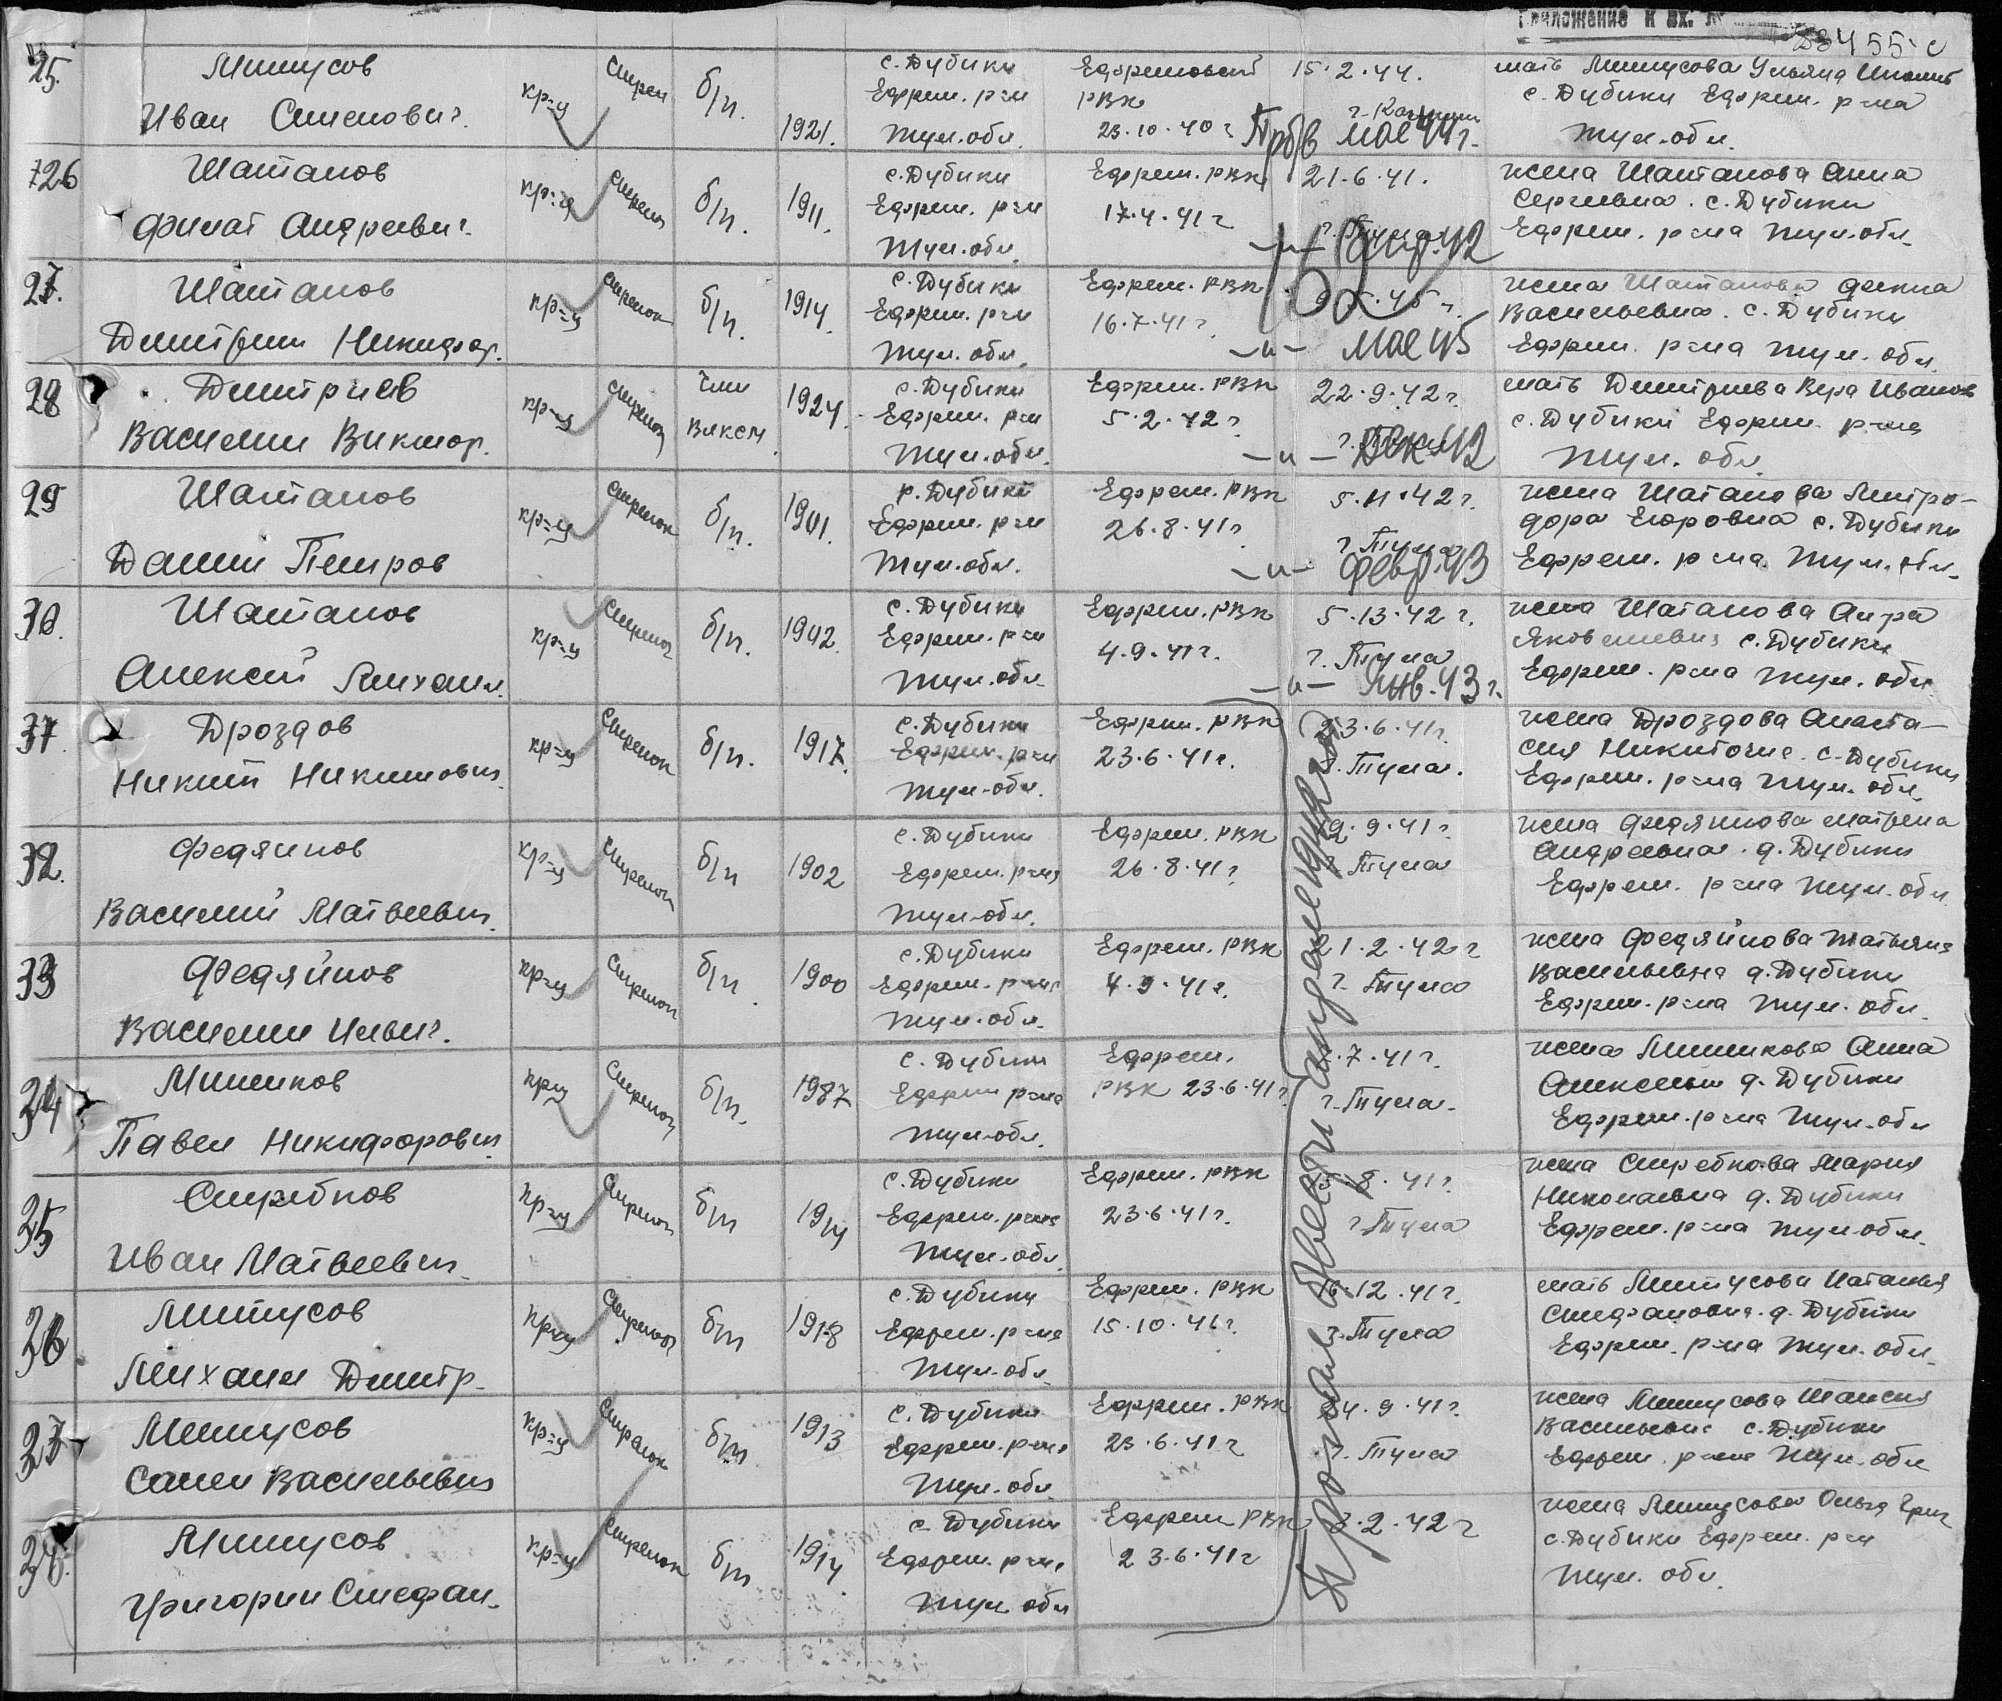 Приложение к вх. №
23455с
25. Митусов Иван Семенович. кр-ц стрел б/п. 1921. с. Дубики Ефремовский 15.2.44. мать Митусова Ульяна
Ефрем. р-н РВК с. Дубики Ефрем. р-на
Тул. обл. 23.10.40 г Прб/в мае 44 г. Тул. обл.
726 Шаталов Филат Андреевич. кр-ц стрелок б/п. 1911. с. Дубики Ефрем. РВК 21.6.41. жена Шаталова Анна
Ефрем. р-н 17.4.41 г Сергеевна. с. Дубики
Тул. обл. —и— 42 Ефрем. р-на Тул. обл.
27. Шаталов Дмитрии Никифор. кр-ц стрелок б/п. 1914. с. Дубики Ефрем. РВК жена Шаталова
Ефрем. р-н 16.7.41 г. Васильевна. с. Дубики
Тул. обл. —и— мае 45 Ефрем. р-на Тул. обл.
28 Дмитриев Василии Виктор. кр-ц стрелок член ВЛКСМ 1924. с. Дубики Ефрем. РВК 22.9.42 г. мать Дмитриева Вера Иванов
Ефрем. р-н 5.2.42 г. с. Дубики Ефрем. р-на
Тул. обл. —и— дек 42 Тул. обл.
29 Шаталов Данил Петров кр-ц стрелок б/п. 1901. с. Дубики Ефрем. РВК 5.11.42 г. жена Шаталова Митро-
Ефрем. р-н 26.8.41 г. г. Тула дора Егоровна с. Дубики
Тул. обл. —и— февр. 43 Ефрем. р-на. Тул. обл.
30. Шаталов Алексей Михаил. кр-ц стрелок б/п. 1942. с. Дубики Ефрем. РВК 5.13.42 г. жена Шаталова
Ефрем. р-н 4.9.41 г. г. Тула Яковлевна с. Дубики
Тул. обл. —и— янв. 43 г. Ефрем. р-на Тул. обл.
31. Дроздов Никит Никитович кр-ц стрелок б/п. 1917. с. Дубики Ефрем. РВК 23.6.41 г. жена Дроздова Анаста-
Ефрем. р-н 23.6.41 г. г. Тула. сия с. Дубики
Тул. обл. Ефрем. р-на Тул. обл.
32. Федяинов Василий Матвеевич. кр-ц стрелок б/п 1902 с. Дубики Ефрем. РВК 9.41 г. жена Федяинова Матрена
Ефрем. р-на 26.8.41 г. Тула Андреевна. д. Дубики
Тул. обл. Ефрем. р-на Тул. обл.
33 Федяйнов Василии Ильич. кр-ц стрелок б/п. 1900 с. Дубики Ефрем. РВК 1.2.42 г жена Федяйнова Татьяна
Ефрем. р-на 4.9.41 г. г. Тула Васильевна д. Дубики
Тул. обл. Ефрем. р-на Тул. обл.
34 Мишиков Павел Никифорович. кр-ц стрелок б/п. 1987 с. Дубики Ефрем. 7.41 г. жена Мишикова Анна
Ефрем р-на РВК 23.6.41 г. г. Тула. д. Дубики
Тул. обл. Ефрем. р-на Тул. обл
35 Скребков Иван Матвеевич. кр-ц стрелок б/п 1914 с. Дубики Ефрем. РВК 8.41 г. жена Скребкова Мария
Ефрем. р-на 23.6.41 г. г. Тула Николаевна д. Дубики
Тул. обл. Ефрем. р-на Тул. обл.
36. Митусов Михаил Дмитр. кр-ц стрелок б/п 1918 с. Дубики Ефрем. РВК 16.12.41 г. мать Митусова Наталья
Ефрем. р-на 15.10. г. г. Тула Стефановна. д. Дубики
Тул. обл. Ефрем. р-на Тул. обл.
37 Митусов Васильевич кр-ц стрелок б/п. 1913 с. Дубики Ефрем. РВК 24.9.41 г. жена Митусова
Ефрем. р-на 23.6.41 г г. Тула с. Дубики
Тул. обл. Ефрем. р-на Тул. обл
38. Митусов Григории Стефан. кр-ц стрелок б/п 1914. с. Дубики Ефрем РВК 2.42 г жена Митусова Ольга Григ
Ефрем. р-на 23.6.41 г с. Дубики Ефрем. р-н
Тул. обл Тул. обл.